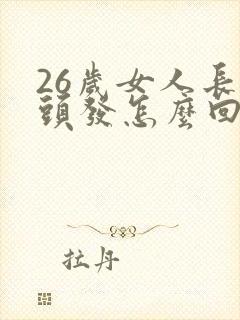 26歲女人長
頭發怎麼回
拉丹